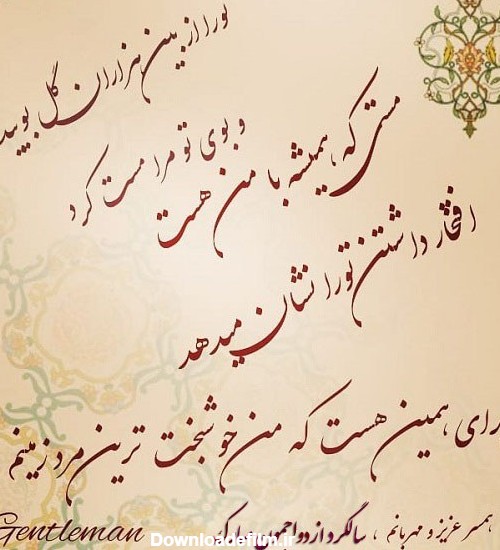 تورا از بین هزاران گل بویید
و بوی تو مرا مست کرد
مستی که ، همیشه با من هست
افتخار داشتن تورا نشان میدهد
رای همین هست که من خوشبخت ترین مرد زمینم
همسر عزیز و مهربانم ، سالگرد ازدواجمون
Gentleman
Downloadefilm.ir